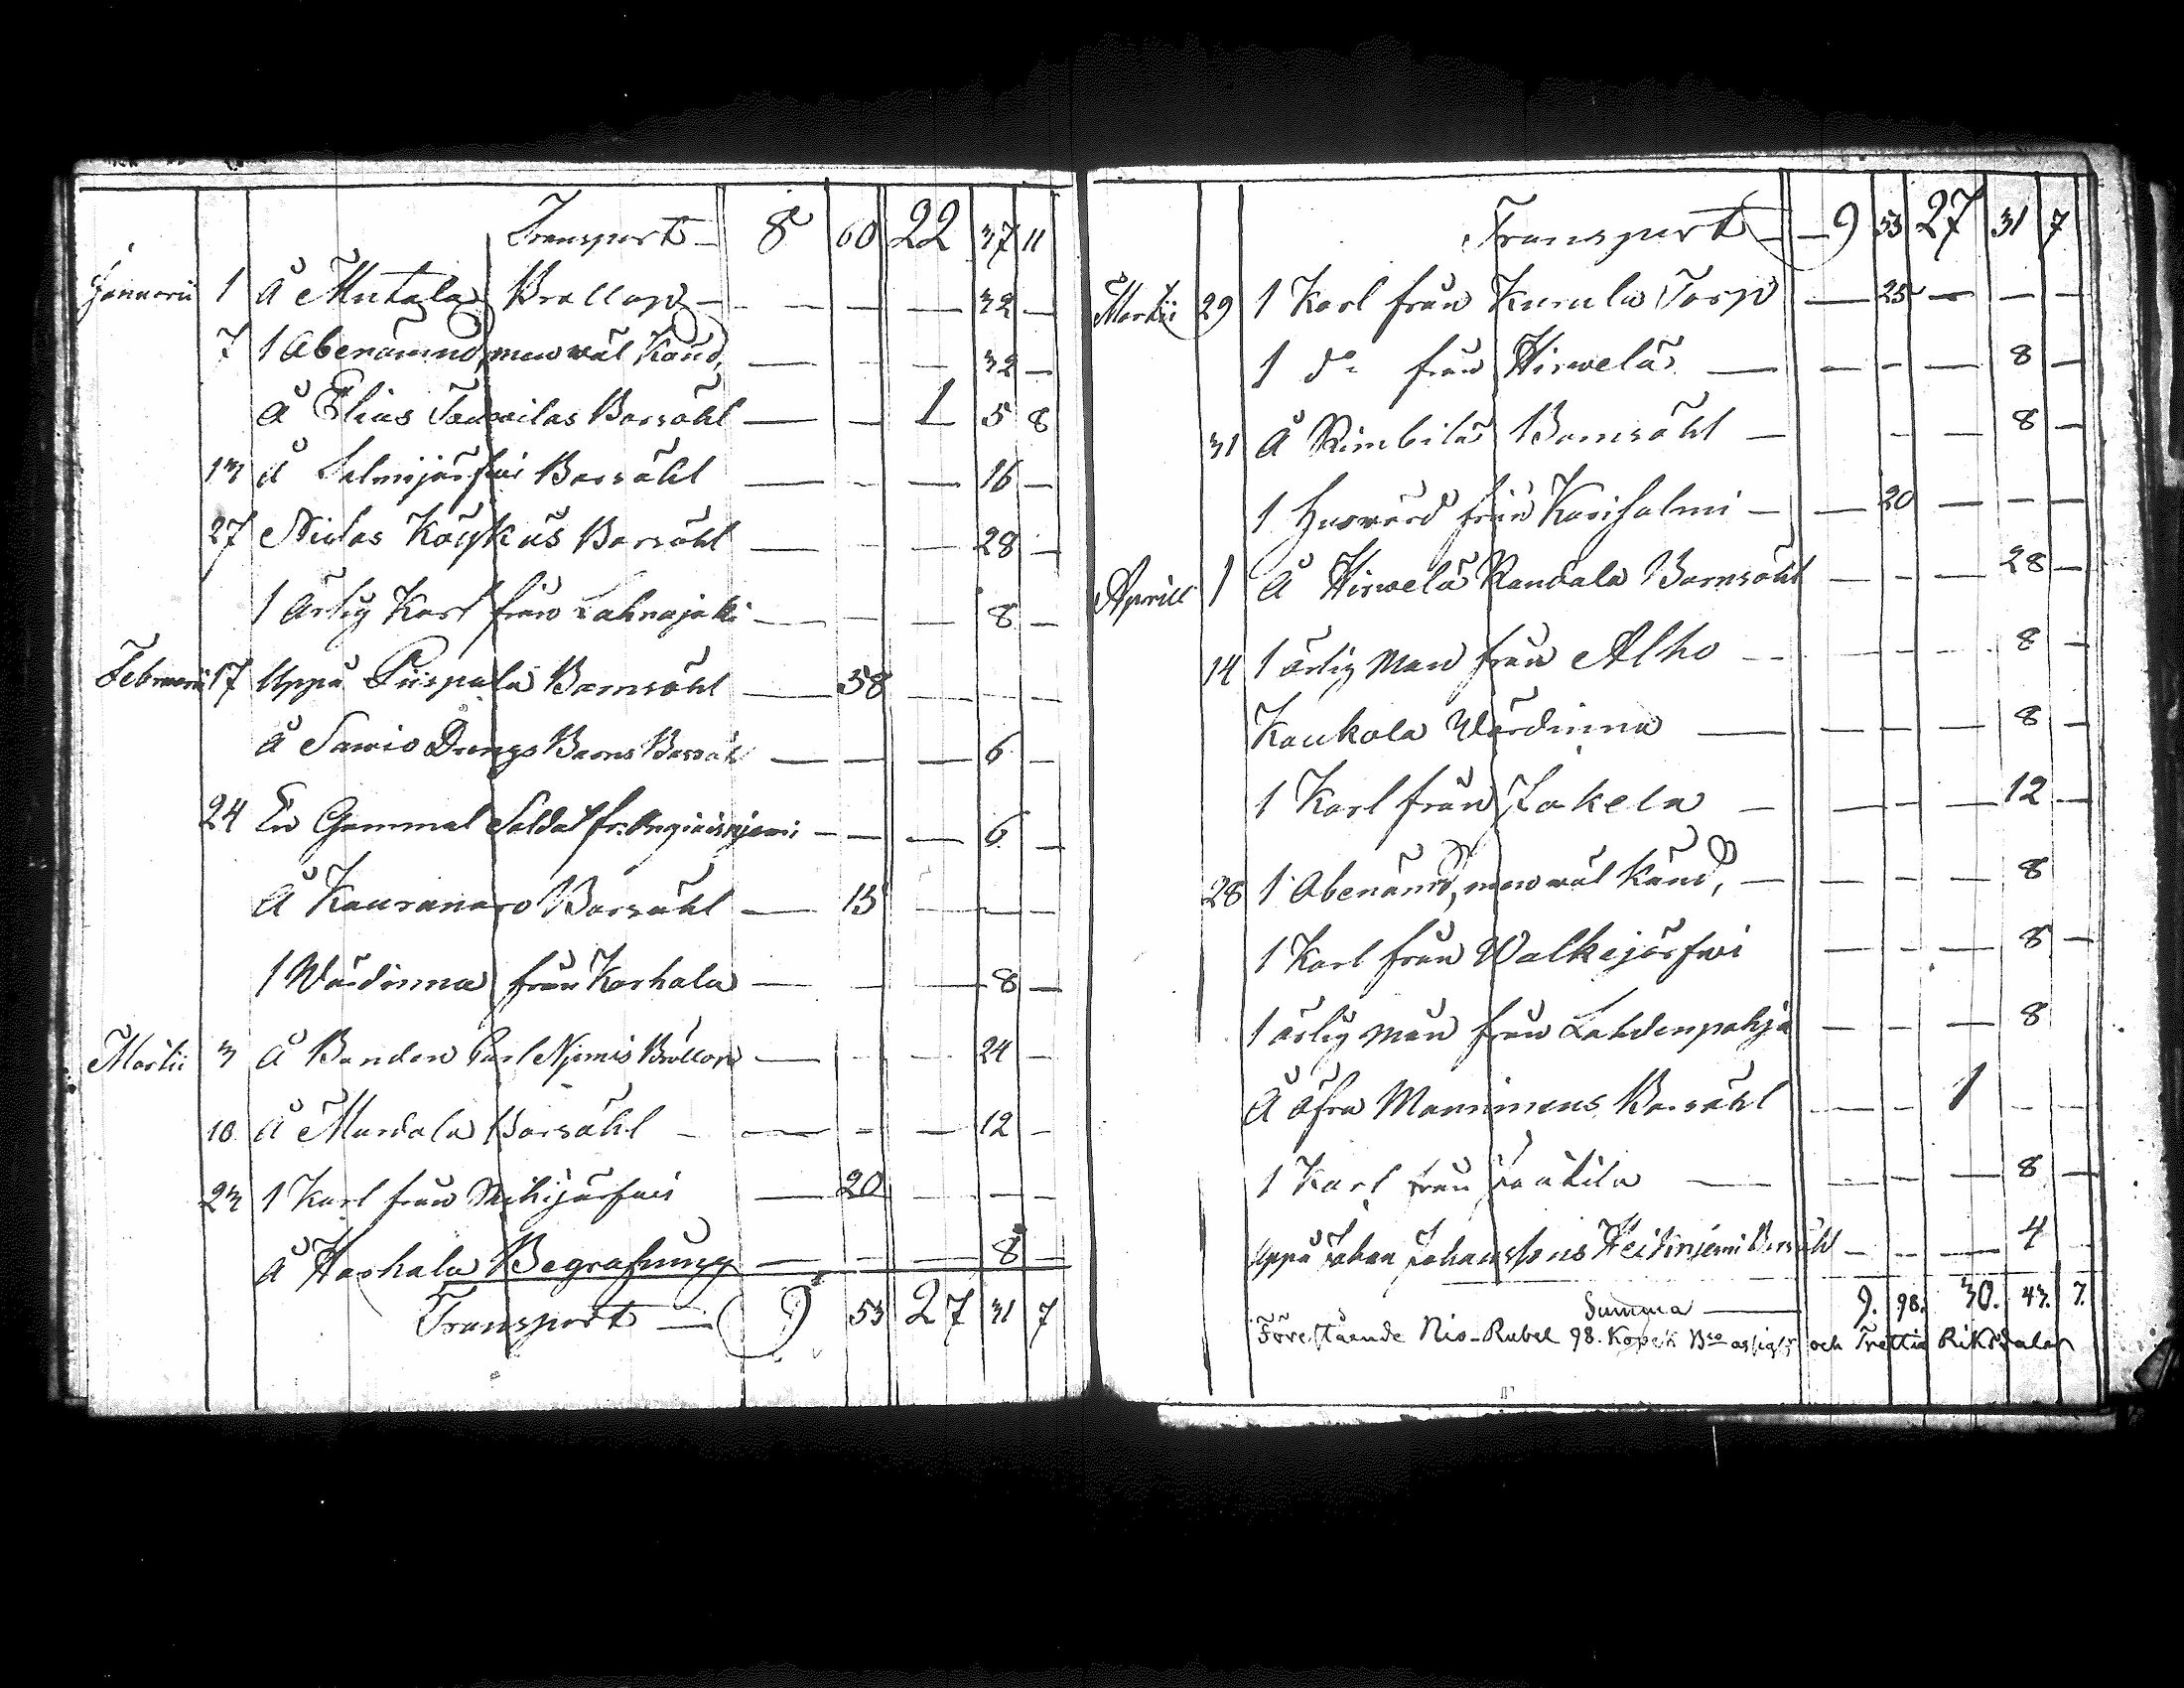 Transport — 8 60 22 37 11
Januarii 1 Å Mutala Bröllop — — — — 32 —
7 1 Obenämnd, men wäl Känd, — — — 32 —
Å Elias Barsöhl — — 1 5 8
13 Å Salmijärfwi Barsöhl — — — 16 —
27 Niclas Barsöhl — — — 28 —
1 Ärlig Karl från Lahnajoki — — — 8 —
Februarii 17 Uppå Piispala Barnsöhl — 58 — — —
Å Sawio Drengs Barns Barsöhl — — — 6 —
24 En Gammal Soldat fr. — — — 6 —
Å Kauranaro Barsöhl — 15 — — —
1 Wärdinna från Karhala — — — 8 —
Martii 3 Å Bonden Bröllop — — — 24 —
10 Å Mardala Barsöhl — — — — 12 —
23 1 Karl från — 20 — — —
Å Harhala Begrafning — — — 8 —
Transport — 9 53 27 31 7
Transport — — 9 53 27 31 7
Martii 29 1 Karl från Kurala Torp — 25 — — —
1 do från Hirwelä — — — — 8 —
31 Å Rimbilä Barnsöhl — — — 8 —
1 Huswärd från Kariholmi — — 20 — — —
Aprill 1 Å Hirwelä Randala Barnsöhl — — — 28 —
14 1 ärlig Man från Alho — — — — 8 —
Kaukola Wärdinna — — — — 8 —
1 Karl från Lakela — — — — 12 —
28 1 Obenämd, men wäl Känd, — — — — 8
1 Karl från Walkejärfwi — — — 8 —
1 ärlig Man från Lahdenpohja — — — 8
Å Öfra Manninens Barsöhl — — 1 — —
1 Karl från — — — — 8 —
Uppå Johan Johanssons Heikinjemi Barsöhl — — — 4 —
Summa — 9. 98. 30. 43. 7.
Förestående Nio Rubel 98. Kopek och Trettio Riksdaler